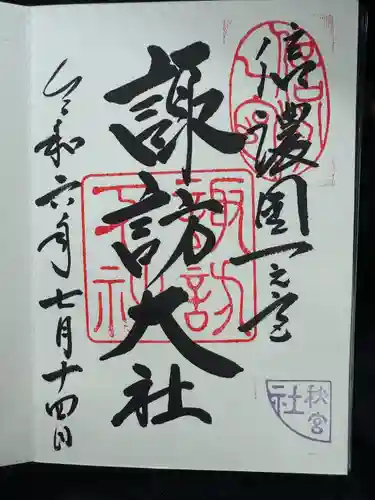 信濃國一之宮
諏訪大社
令和六年七月十四日
諏訪
下社
秋宮
社